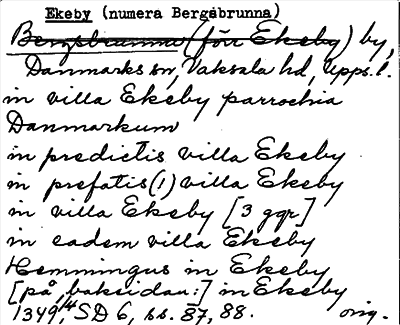 Ekeby (numera Bergsbrunna)
Bergsbrunna (förr Ekeby) by,
Danmarks sn, Vaksala hd, Upps. l.
in villa Ekeby parrochia
Danmarkum
in predictis villa Ekeby
in prefatis (!) villa Ekeby
in villa Ekeby [3 ggr]
in eadem villa Ekeby
Hemmingus in Ekeby
[på baksidan:] in Ekeby
1349 14/4 SD 6, ss. 87, 88. orig.